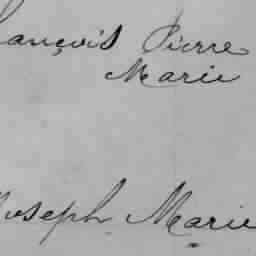 ançois Pierre
Marie
Joseph Marie